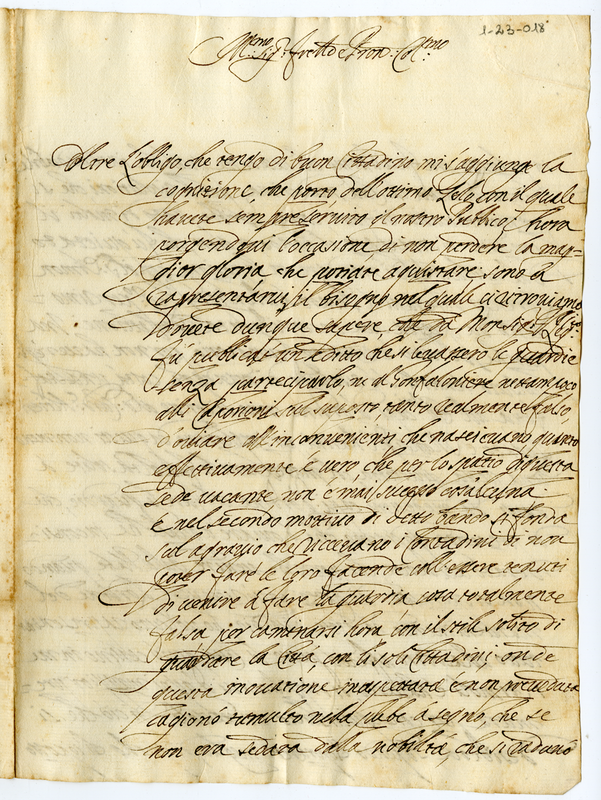 1-23-018
Oltre l'obligo, che tengo di buon Cittadino mi s'aggiunge la
cognizione, che porto dell'ottimo Zelo con il quale
havete sempre servito il nostro Publico, hora
porgendogli l'occasione di non perdere la mag-
gior gloria che potiate aquistare sono a
rapresentarvi il bisogno nel quale ci ritroviamo
Dovete dunque sapere che da Monsigr
fù publicato un editto che si levassero le Guardie
senza participarlo, ne al Confaloniere ne tampoco
alli Caporioni sul suposto tanto realmente falso,
d'oviare all'inconvenienti che nascevano quanto
effettivamente è vero che per lo spatio di questa
sede vacante non è mai successo cosa alcuna
e nel secondo mottivo di detto bando si fonda
sul agravio che ricevano i Contadini di non
poter fare le loro facende coll'essere tenuti
di venire a fare la guardia cosa totalmente
falsa per caminarsi hora con il stile solito di
guardare la Città, con li soli Cittadini; onde
questa inovatione inaspettata e non preveduta
cagionò tumulto nella plebe a segno, che se
non era sedata dalla nobiltà, che si radunò